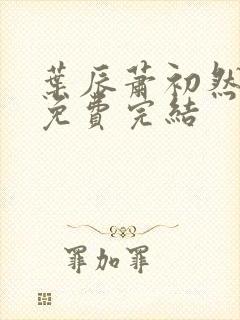 葉辰蕭初然
免費完結
罪加罪